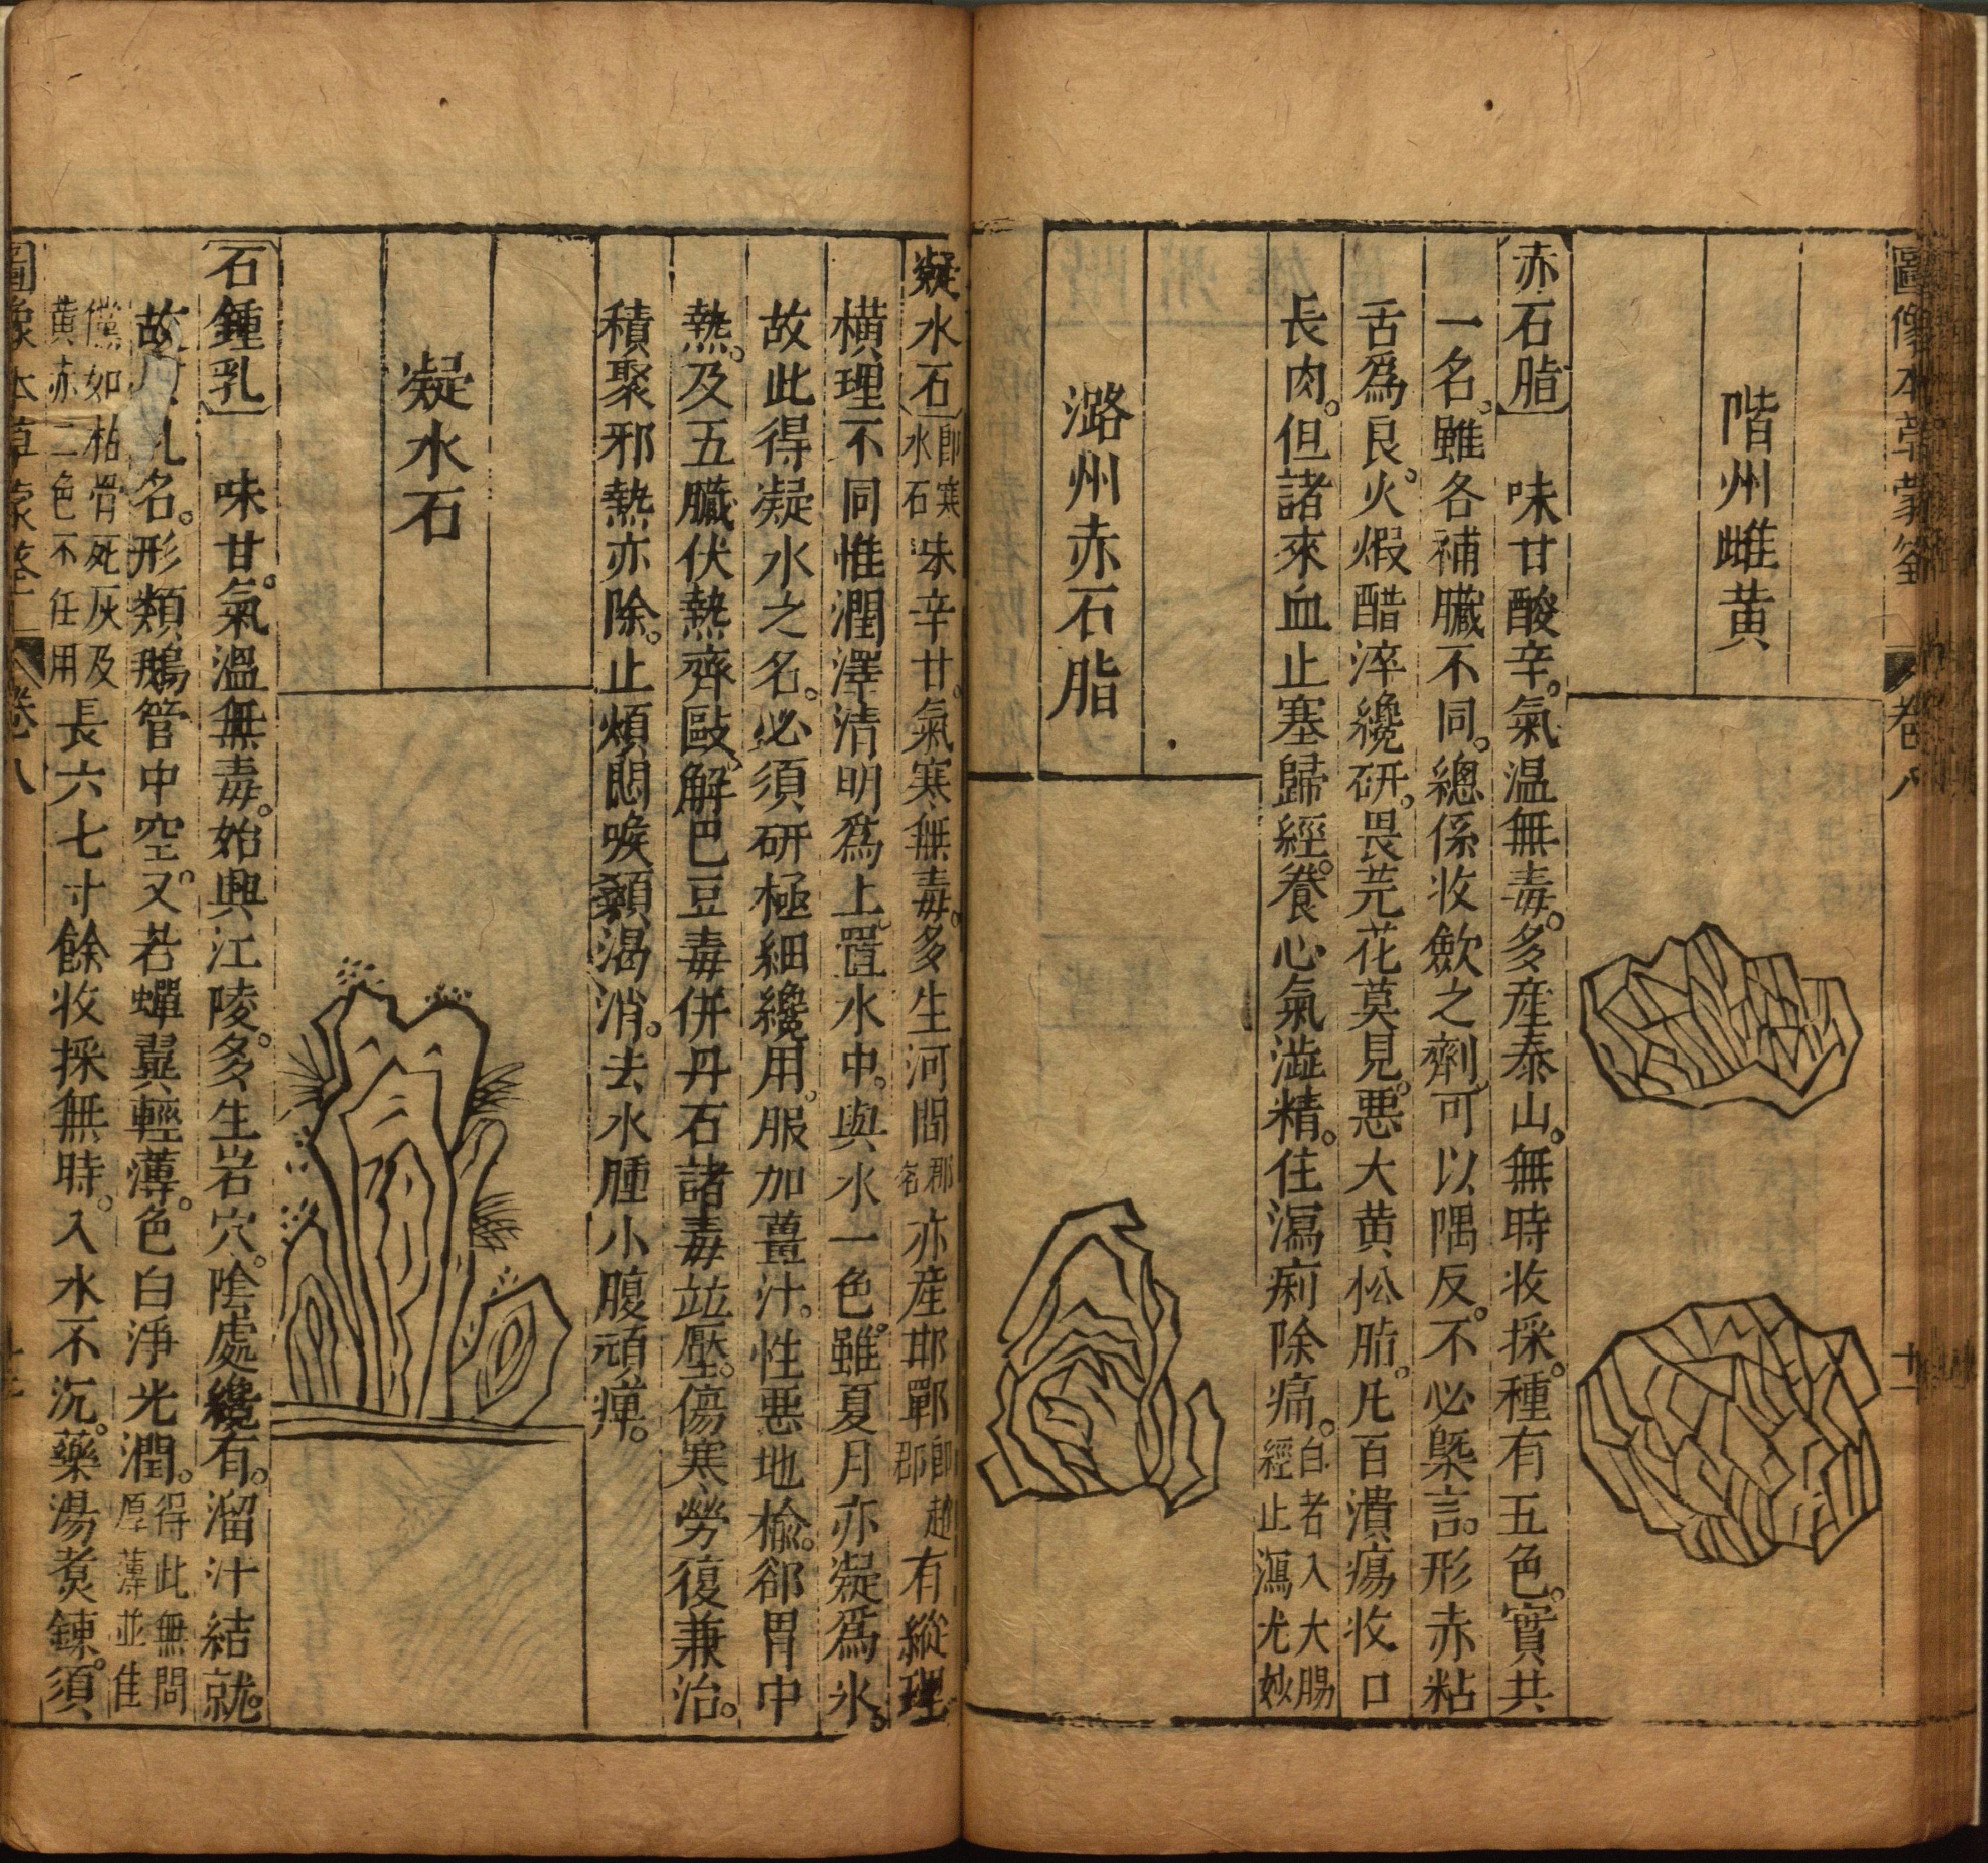 圖像本草蒙筌 卷八 十一
階州雌黄
赤石脂 味甘酸辛。氣温無毒。多産泰山。無時收採。種有五色。實共
一名。雖各補臟不同。總係收斂之劑。可以隅反。不必槩言。形赤粘
舌爲良。火煅醋淬纔研。畏芫花莫見。悪大黄松脂。凡百潰瘍收口
長肉。但諸來血止塞歸經。養心氣澁精。住瀉痢除痛。白者入大腸經止瀉尤妙
潞州赤石脂
凝水石 即寒水石 味辛甘。氣寒無毒。多生河間 郡名 亦産邯鄲 即趙郡 有縱理
橫理不同惟潤澤清明爲上。置水中。與水一色。雖夏月亦凝爲氷。
故此得凝水之名。必須研極細纔用。服加薑汁。性悪地榆。卻胃中
熱。及五臟伏熱齊敺。解巴豆毒併丹石諸毒竝壓。傷寒勞復兼治。
積聚邪熱亦除。止煩悶喉顙渴消。去水腫小腹頑痺。
凝水石
石鍾乳 味甘。氣溫無毒。始興江陵。多生岩穴。陰處纔有。溜汁結就。
故 乳名。形類鵝管中空。又若蟬翼輕薄。色白淨光潤。得此無問厚薄並佳
儻如枯骨死灰及黄赤二色不任用 長六七寸餘收採無時。入水不沉。藥湯煮錬。須
圖像本草蒙筌 卷八